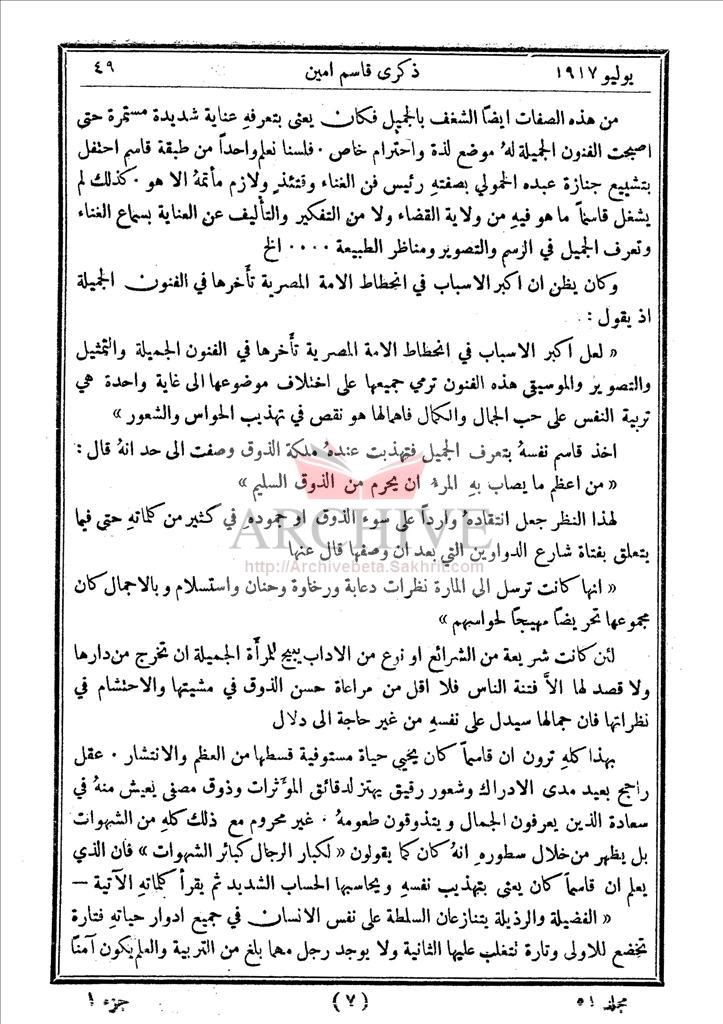 يوليو ١٩١٧ ذكرى قاسم امين ٤٩
من هذه الصفات ايضاً الشغف بالجميل فكان يعنى بتعرفهِ عناية شديدة مستمرة حتى
اصبحت الفنون الجميلة لهُ موضع لذة واحترام خاص . فلسنا نعلم واحداً من طبقة قاسم احتفل
بتشييع جنازة عبده الحمولي بصفتهِ رئيس فن الغناء وقتئذٍ ولازم مأتمهُ الا هو . كذلك لم
يشغل قاسماً ما هو فيهِ من ولاية القضاء ولا من التفكير والتأليف عن العناية بسماع الغناء
وتعرف الجميل في الرسم والتصوير ومناظر الطبيعة .... الخ
وكان يظن ان اكبر الاسباب في انحطاط الامة المصرية تأخرها في الفنون الجميلة
اذ يقول :
« لعل اكبر الاسباب في انحطاط الامة المصرية تأخرها في الفنون الجميلة والتمثيل
والتصوير والموسيقى هذه الفنون ترمي جميعها على اختلاف موضوعها الى غاية واحدة هي
تربية النفس على حب الجمال والكمال فاهمالها هو نقص في تهذيب الحواس والشعور »
اخذ قاسم نفسهُ بتعرف الجميل فتهذبت عندهُ ملكة الذوق وصفت الى حد انهُ قال :
« من اعظم ما يصاب بهِ المرء ان يحرم من الذوق السليم »
لهذا النظر جعل انتقادهُ وارداً على سوء الذوق او جمودهِ في كثير من كلماتهِ حتى فيما
يتعلق بفتاة شارع الدواوين التي بعد ان وصفها قال عنها
« انها كانت ترسل الى المارة نظرات دعابة ورخاوة وحنان واستسلام وبالاجمال كان
مجموعها تحريضاً مهيجاً لحواسهم »
لئن كانت شريعة من الشرائع او نوع من الاداب يبيح للمرأة الجميلة ان تخرج من دارها
ولا قصد لها الاَّ فتنة الناس فلا اقل من مراعاة حسن الذوق في مشيتها والاحتشام في
نظراتها فان جمالها سيدل على نفسهِ من غير حاجة الى دلال
بهذا كلهِ ترون ان قاسماً كان يحيي حياة مستوفية قسطها من العظم والانتشار . عقل
راجح بعيد مدى الادراك وشعور رقيق يهتز لدقائق المؤثرات وذوق مصفى يعيش منهُ في
سعادة الذين يعرفون الجمال ويتذوقون طعومهُ . غير محروم مع ذلك كلهِ من الشهوات
بل يظهر من خلال سطورهِ انهُ كان كما يقولون « لكبار الرجال كبائر الشهوات » فان الذي
يعلم ان قاسماً كان يعنى بتهذيب نفسهِ ويحاسبها الحساب الشديد ثم يقرأ كلماتهِ الآتية —
« الفضيلة والرذيلة يتنازعان السلطة على نفس الانسان في جميع ادوار حياتهِ فتارة
تخضع للاولى وتارة نتغلب عليها الثانية ولا يوجد رجل مهما بلغ من التربية والعلم يكون آمناً
مجلد ٥١ (٧) جزء ١
ARCHIVE
http://Archivebeta.Sakhrit.com